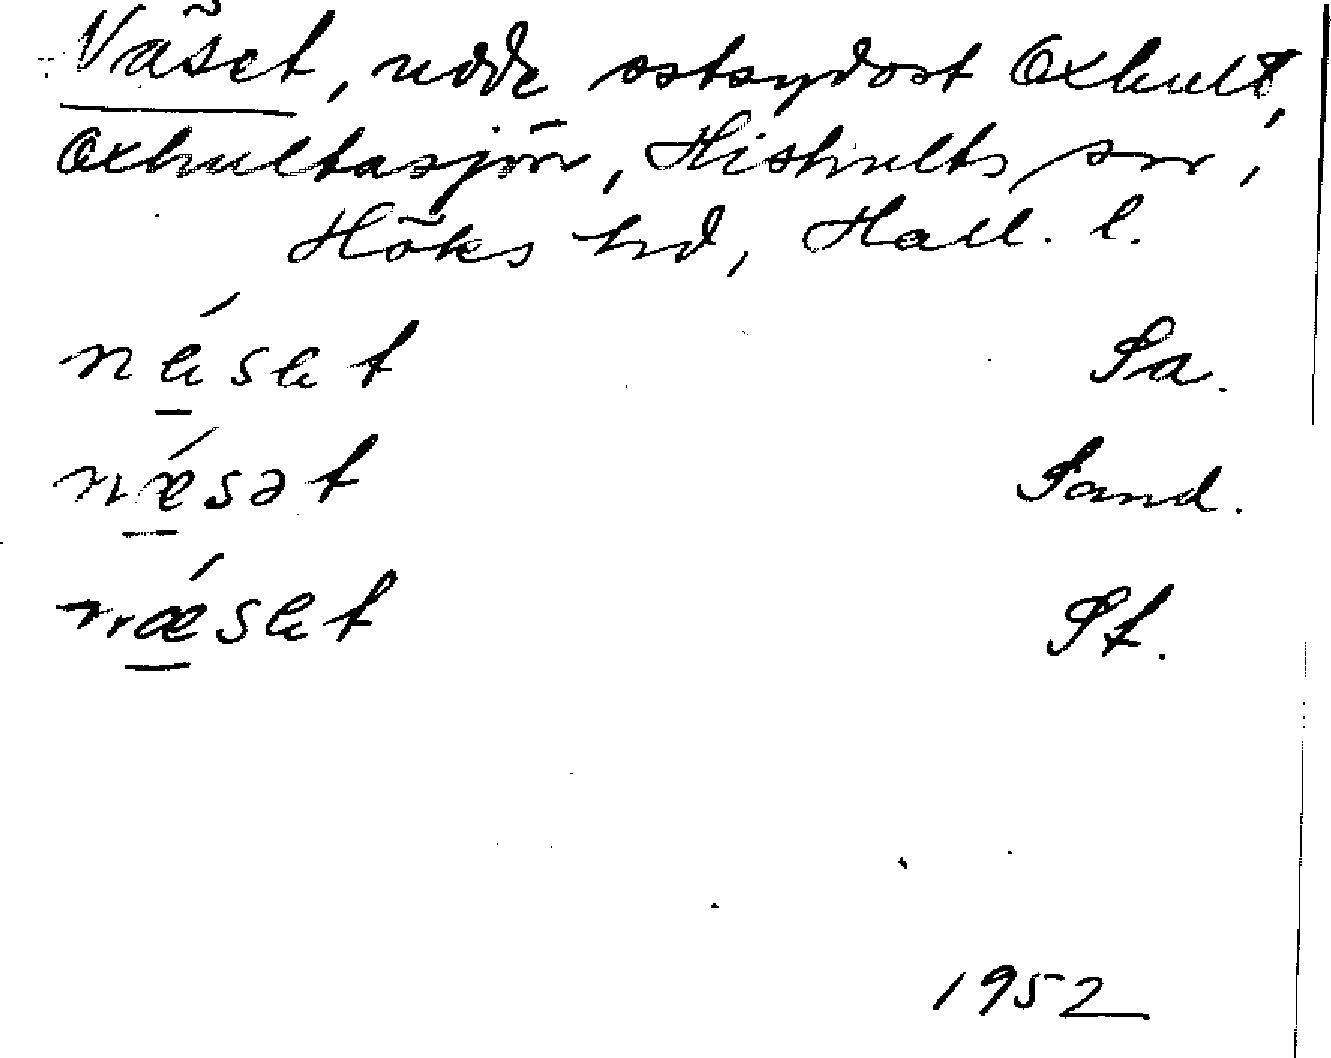 Näset, udde ostsydost Oxhult,
Oxhultasjön, Hishults sn,
Höks hd, Hall. l.
néset Sa.
nǽsət Sand.
nǽset St.
1952